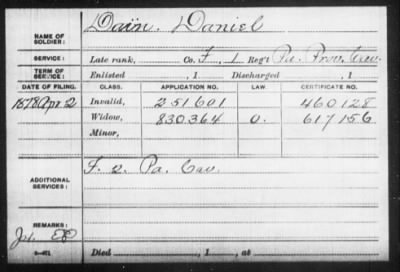 NAME OF SOLDIER: Dain, Daniel
SERVICE: Late rank, Co. F, 1 Reg't Pa. Prov. Cav.
TERM OF SERVICE: Enlisted , 1 Discharged , 1
DATE OF FILING. CLASS. APPLICATION NO. LAW. CERTIFICATE NO.
1878 Apr 2 Invalid, 251601 460128
Widow, 830364 O. 617156
Minor,
ADDITIONAL SERVICES: F. 2. Pa. Cav.
REMARKS:
Died , 1 , at